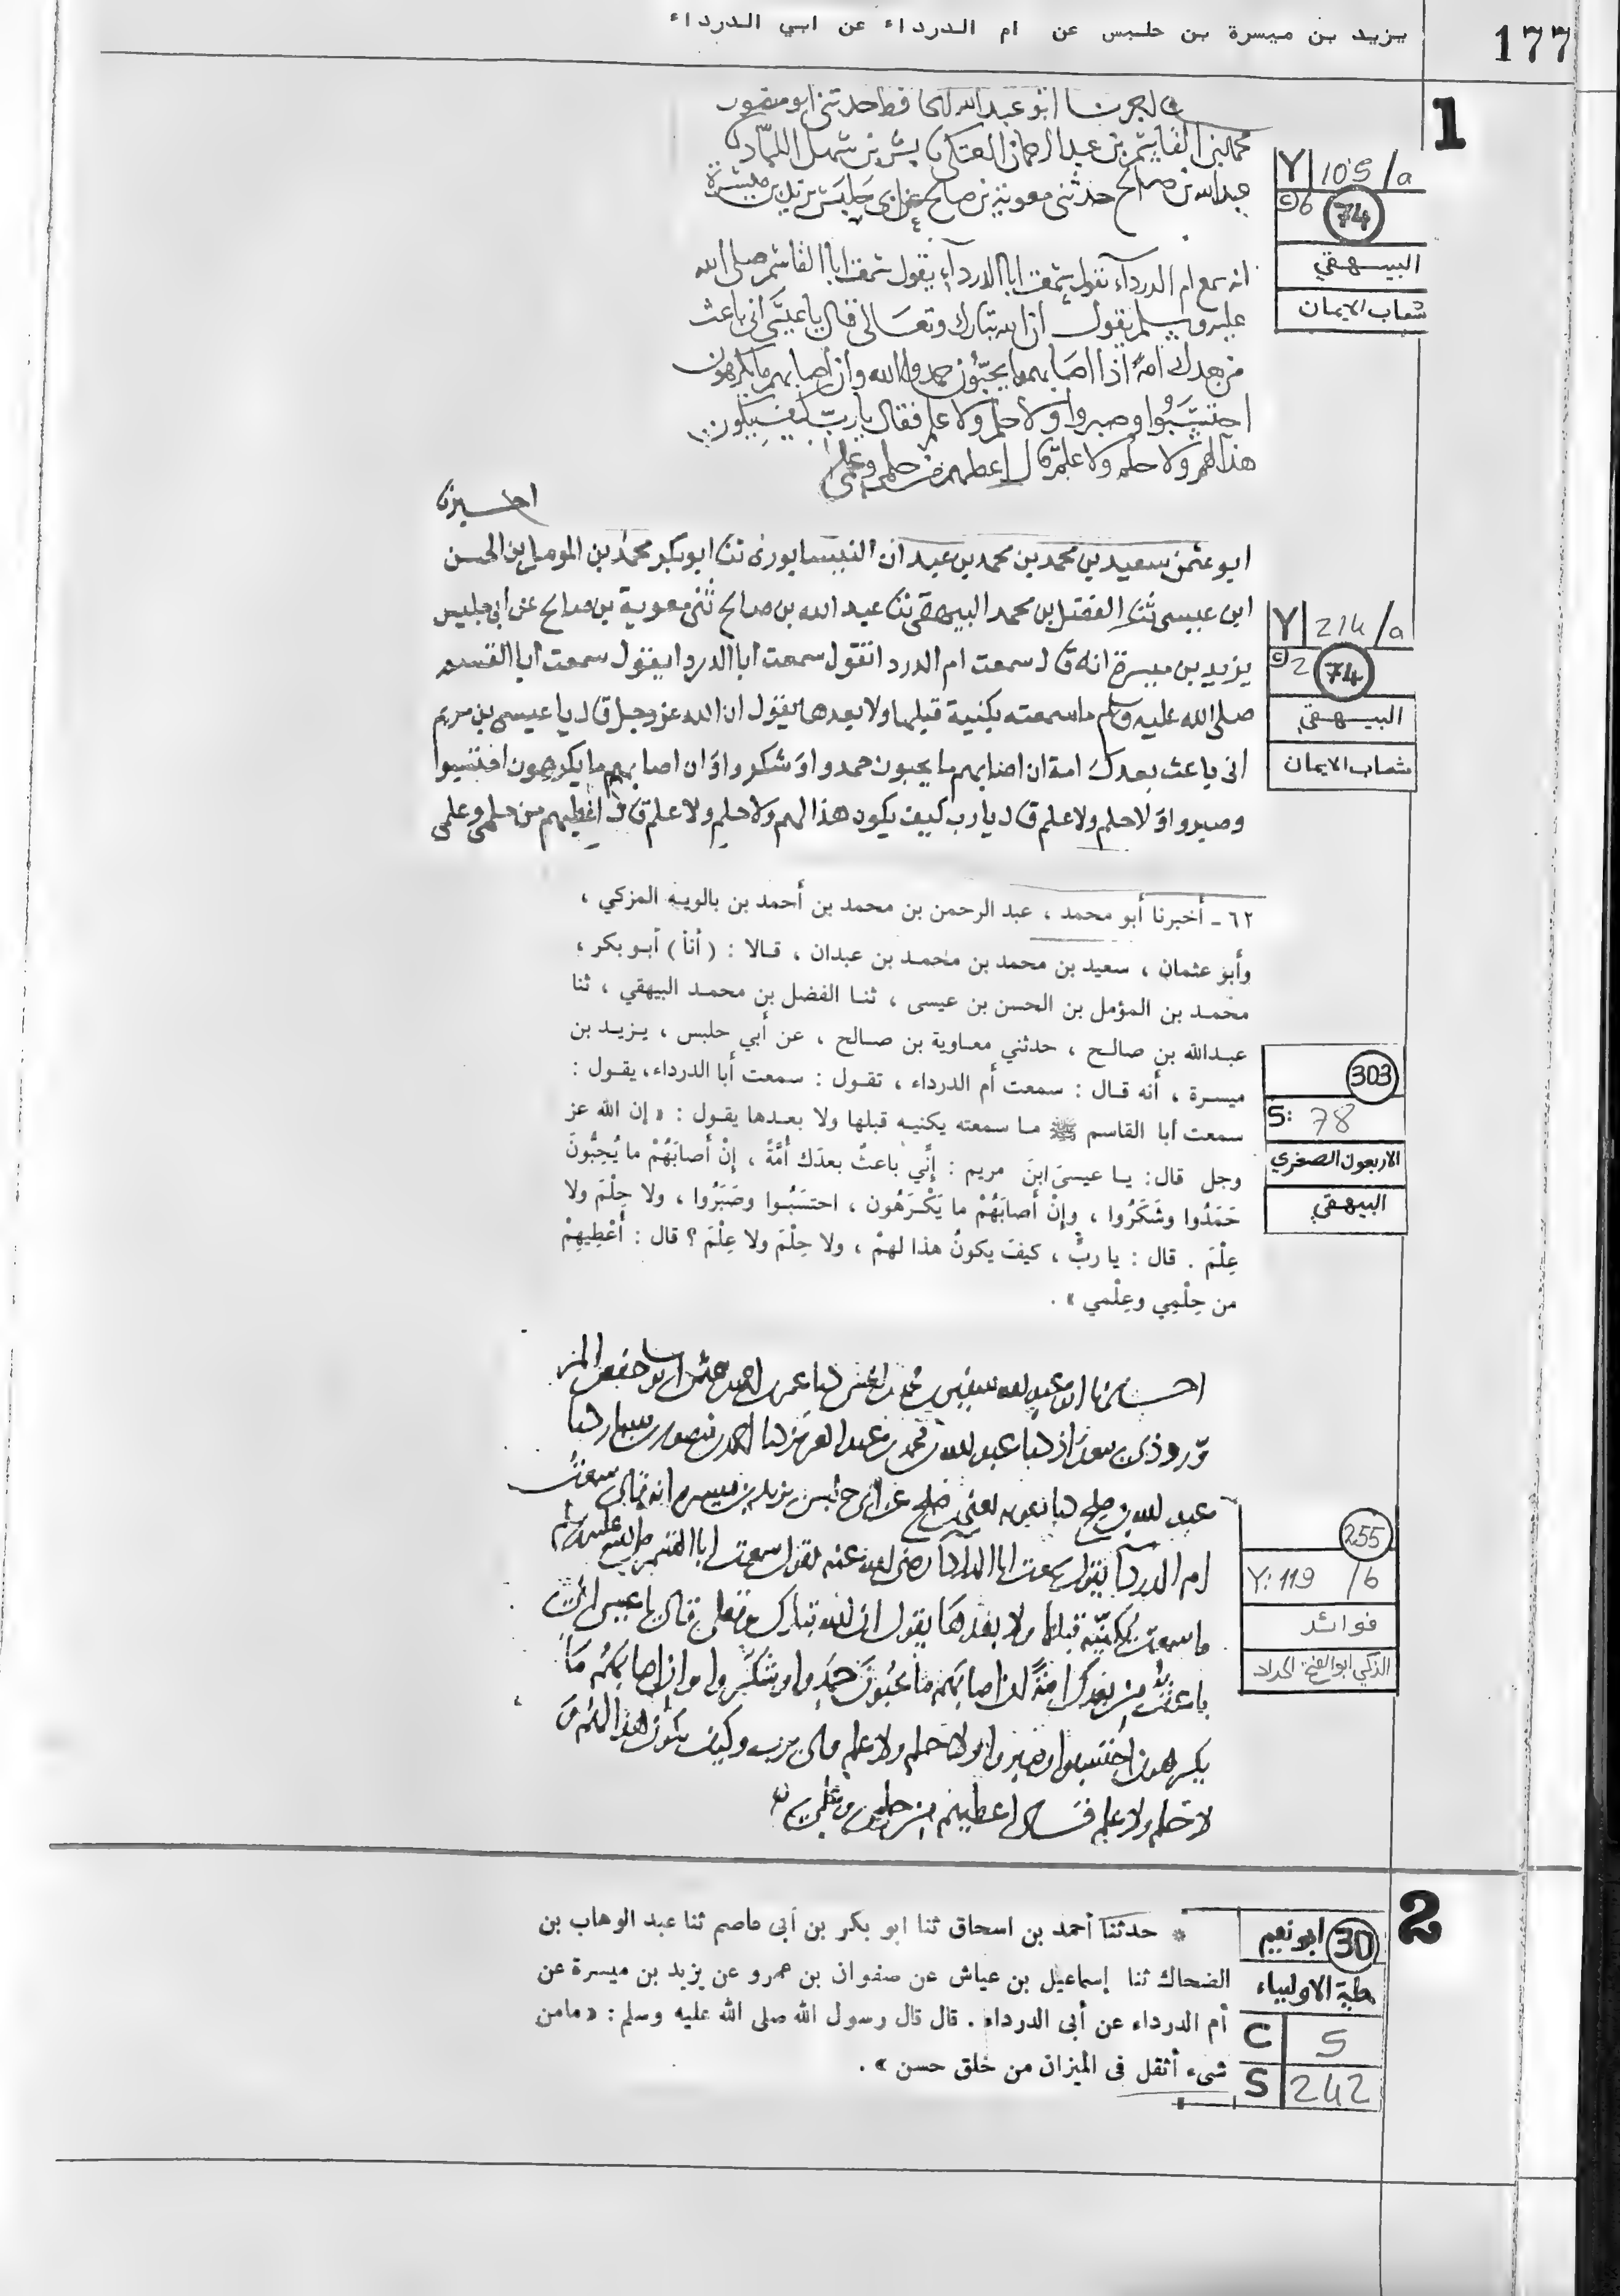 177
يزيد بن ميسرة بن حلبس عن ام الدرداء عن ابي الدرداء
1
اخبرنا ابو عبد الله الحافظ حدثني ابو منصور
محمد بن القاسم بن عبد الرحمان العتكي نا بشر بن سهل اللباد نا
عبد الله بن صالح حدثني معوية بن صالح عن ابي حلبس يزيد بن ميسرة
انه سمع ام الدرداء تقول سمعت ابا الدرداء يقول سمعت ابا القاسم صلى الله
عليه وسلم يقول ان الله تبارك وتعالى قال يا عيسى اني باعث
من بعدك امة اذا اصابهم ما يحبون حمدوا الله وان اصابهم ما يكرهون
احتسبوا وصبروا ولا حلم ولا علم فقال يا رب كيف يكون
هذا لهم ولا حلم ولا علم قال اعطيهم من حلمي وعلمي
Y 105/a
©6 74
البيهقي
شعاب الايمان
اخبرنا
ابو عثمن سعيد بن محمد بن محمد بن عبدان النيسابوري ثنا ابو بكر محمد بن المومل بن الحسن
ابن عيسى ثنا الفضل بن محمد البيهقي ثنا عبد الله بن صالح ثني معوية بن صالح عن ابي حلبس
يزيد بن ميسرة انه قال سمعت ام الدردا تقول سمعت ابا الدردا يقول سمعت ابا القسم
صلى الله عليه وسلم ما سمعته يكنية قبلها ولا بعدها يقول ان الله عز وجل قال يا عيسى بن مريم
اني باعث بعدك امة ان اصابهم ما يحبون حمدوا وشكروا وان اصابهم ما يكرهون احتسبوا
وصبروا ولا حلم ولا علم قال يا رب كيف يكون هذا لهم ولا حلم ولا علم قال اعطيهم من حلمي وعلمي
Y 214/a
©2 74
البيهقي
شعاب الايمان
٦٢ ـ أخبرنا أبو محمد ، عبد الرحمن بن محمد بن أحمد بن بالويه المزكي ،
وأبو عثمان ، سعيد بن محمد بن محمد بن عبدان ، قالا : ( أنا ) أبو بكر ،
محمد بن المؤمل بن الحسن بن عيسى ، ثنا الفضل بن محمد البيهقي ، ثنا
عبدالله بن صالح ، حدثني معاوية بن صالح ، عن أبي حلبس ، يزيد بن
ميسرة ، أنه قال : سمعت أم الدرداء ، تقول : سمعت أبا الدرداء، يقول :
سمعت أبا القاسم ﷺ ما سمعته يكنيه قبلها ولا بعدها يقول : « إن الله عز
وجل قال: يا عيسىَ ابنَ مريم : إِنِّي باعثٌ بعدَك أُمَّةً ، إِنْ أَصابَهُمْ ما يُحِبُّونَ
حَمَدُوا وشَكَرُوا ، وإِنْ أَصابَهُمْ ما يَكْرَهُون ، احتسَبُوا وصَبَرُوا ، ولا حِلْمَ ولا
عِلْمَ . قال : يا ربِّ ، كيفَ يكونُ هذا لهمْ ، ولا حِلْمَ ولا عِلْمَ ؟ قال : أُعْطِيهِمْ
من حِلْمِي وعِلْمي » .
303
S: 78
الاربعون الصغري
البيهقي
عبد الله بن صلح
ام الدرداء تقول سمعت ابا الدرداء رضي الله عنه يقول سمعت ابا القسم صلى الله عليه وسلم
ما سمعته يكنيه قبلها ولا بعدها يقول ان الله تبارك وتعلى قال يا عيسى اني
باعث من بعدك امة ان اصابهم ما يحبون حمدوا وشكروا وان اصابهم ما
يكرهون احتسبوا وصبروا ولا حلم ولا علم قال يرب وكيف يكون هذا لهم و
لا حلم ولا علم قال اعطيهم من حلمي وعلمي
255
Y: 119 /b
فوائد
الزكي ابو الفتح الحداد
2
* حدثنا أحمد بن اسحاق ثنا ابو بكر بن أبى عاصم ثنا عبد الوهاب بن
الضحاك ثنا إسماعيل بن عياش عن صفوان بن عمرو عن يزيد بن ميسرة عن
أم الدرداء عن أبى الدرداء . قال قال رسول الله صلى الله عليه وسلم : « مامن
شىء أثقل فى الميزان من خلق حسن » .
30 ابو نعيم
حلية الاولياء
C 5
S 242